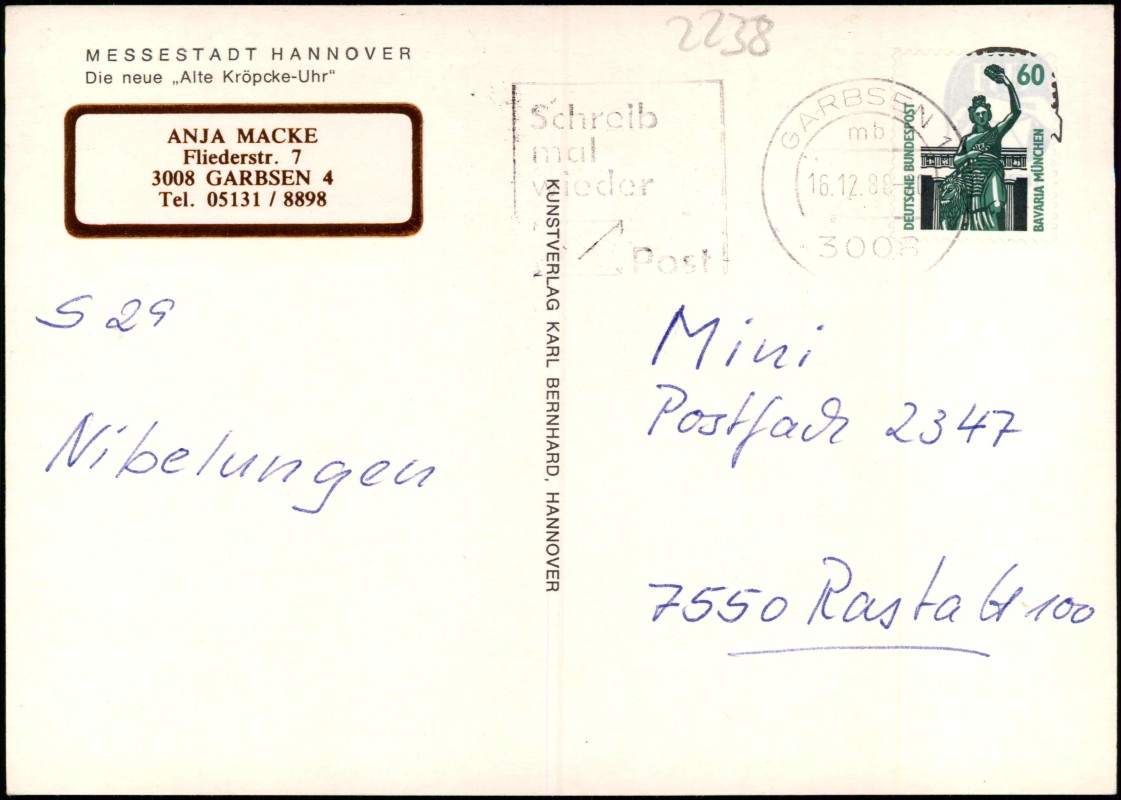 MESSESTADT HANNOVER
Die neue „Alte Kröpcke-Uhr“
ANJA MACKE
Fliederstr. 7
3008 GARBSEN 4
Tel. 05131 / 8898
S 29
Nibelungen
KUNSTVERLAG KARL BERNHARD, HANNOVER
2238
Schreib
mal
wieder
Post
GARBSEN 1
mb
16.12.88
3008
60
DEUTSCHE BUNDESPOST
BAVARIA MÜNCHEN
Mini
Postfach 2347
7550 Rastatt 100